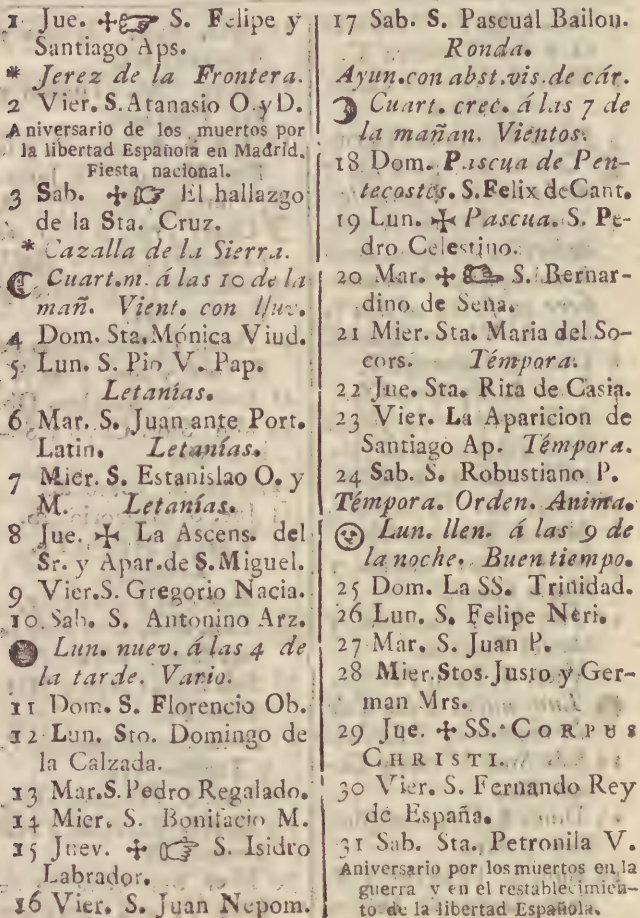 1 Jue. ✢☞ S. Felipe y
Santiago Aps.
* Jerez de la Frontera.
2 Vier. S. Atanasio O. y D.
Aniversario de los muertos por
la libertad Española en Madrid.
Fiesta nacional.
3 Sab. ✢☞ El hallazgo
de la Sta. Cruz.
* Cazalla de la Sierra.
☾ Cuart. m. á las 10 de la
mañ. Vient. con lluv.
4 Dom. Sta. Mónica Viud.
5 Lun. S. Pio V. Pap.
Letanías.
6 Mar. S. Juan ante Port.
Latin. Letanías.
7 Mier. S. Estanislao O. y
M. Letanías.
8 Jue. ✢ La Ascens. del
Sr. y Apar. de S. Miguel.
9 Vier. S. Gregorio Nacia.
10 Sab. S. Antonino Arz.
Lun. nuev. á las 4 de
la tarde. Vario.
11 Dom. S. Florencio Ob.
12 Lun. Sto. Domingo de
la Calzada.
13 Mar. S. Pedro Regalado.
14 Mier. S. Bonifacio M.
15 Juev. ✢☞ S. Isidro
Labrador.
16 Vier. S. Juan Nepom.
17 Sab. S. Pascual Bailon.
Ronda.
Ayun. con abst. vis. de cár.
☽ Cuart. crec. á las 7 de
la mañan. Vientos.
18 Dom. Pascua de Pen-
tecostés. S. Felix de Cant.
19 Lun. ✢ Pascua. S. Pe-
dro Celestino.
20 Mar. ✢☞ S. Bernar-
dino de Sena.
21 Mier. Sta. Maria del So-
cors. Témpora.
22 Jue. Sta. Rita de Casia.
23 Vier. La Aparicion de
Santiago Ap. Témpora.
24 Sab. S. Robustiano P.
Témpora. Orden. Anima.
Lun. llen. á las 9 de
la noche. Buen tiempo.
25 Dom. La SS. Trinidad.
26 Lun. S. Felipe Neri.
27 Mar. S. Juan P.
28 Mier. Stos. Justo y Ger-
man Mrs.
29 Jue. ✢ SS. CORPUS
CHRISTI.
30 Vier. S. Fernando Rey
de España.
31 Sab. Sta. Petronila V.
Aniversario por los muertos en la
guerra y en el restablecimien-
to de la libertad Española.